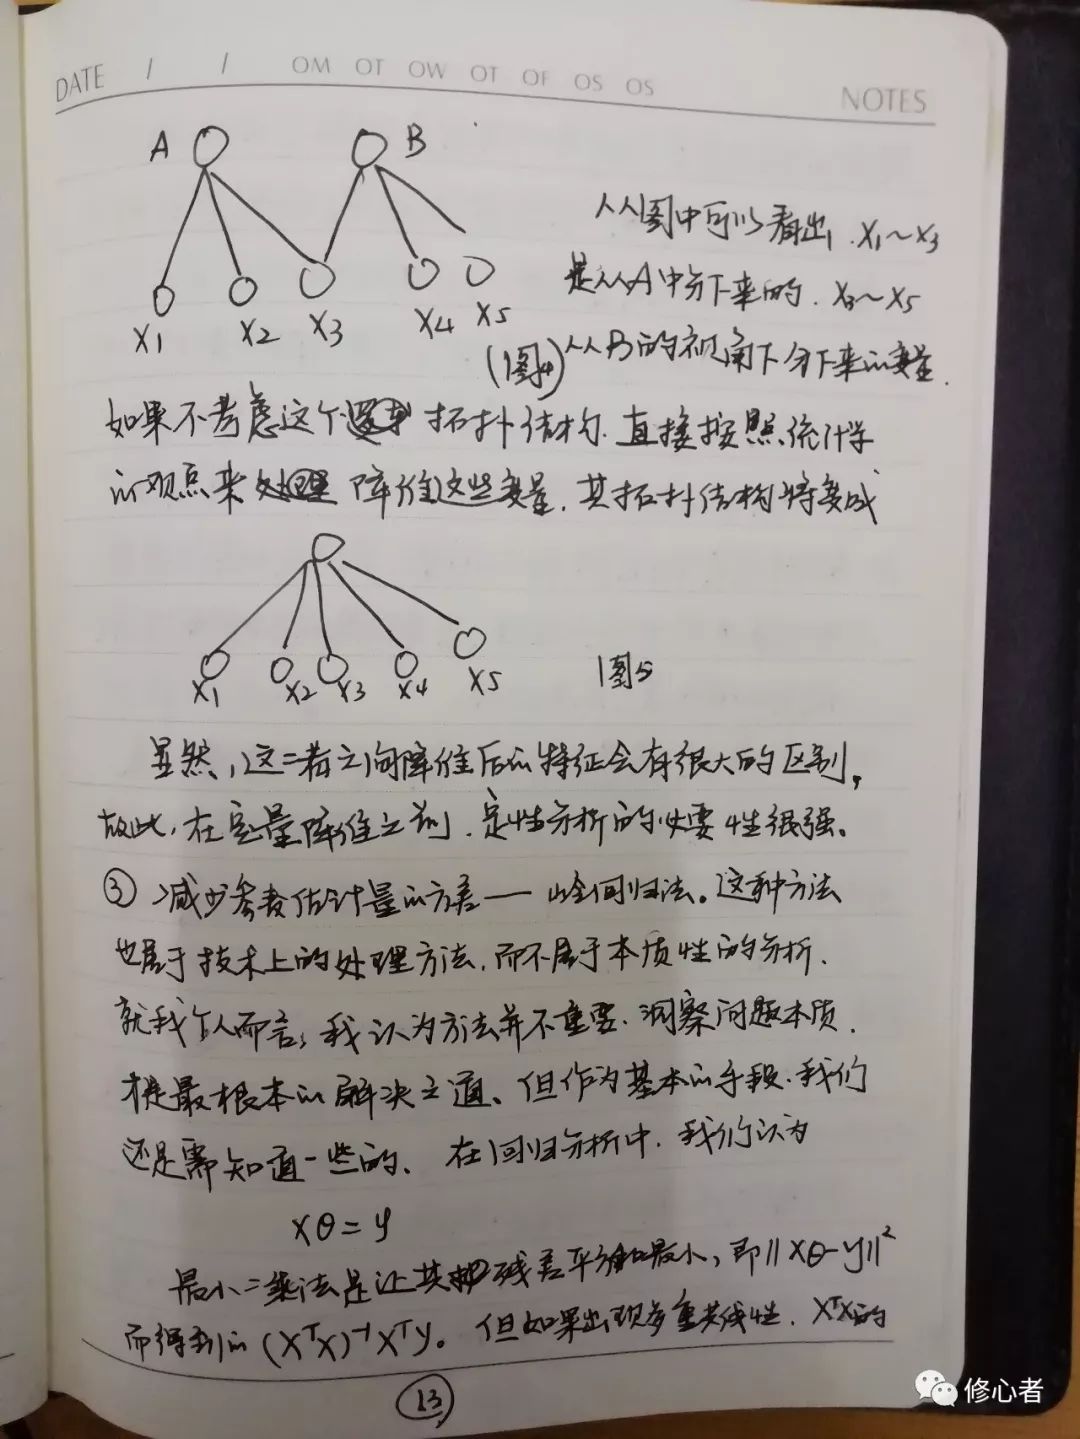 DATE / / OM OT OW OT OF OS OS NOTES
A B
从图中可以看出, X1~X3
是从A中分下来的. X3~X5
从B的视角下分下来的变量.
X1 X2 X3 X4 X5
(图4)
如果不考虑这个拓扑结构. 直接按照统计学
的观点来处理降维这些变量. 其拓扑结构将变成
X1 X2 X3 X4 X5
图5
显然,这二者之间降维后的特征会有很大的区别,
故此,在定量降维之前,定性分析的必要性很强。
③ 减少参数估计量的方差——岭回归法。这种方法
也属于技术上的处理方法,而不属于本质性的分析.
就我个人而言,我认为方法并不重要.洞察问题本质.
才是最根本的解决之道。但作为基本的手段.我们
还是需知道一些的、在回归分析中.我们认为
Xθ=y
最小二乘法是让其残差平方和最小,即||Xθ-y||²
而得到的(XᵀX)⁻¹Xᵀy。但如果出现多重共线性. XᵀX的
13
修心者